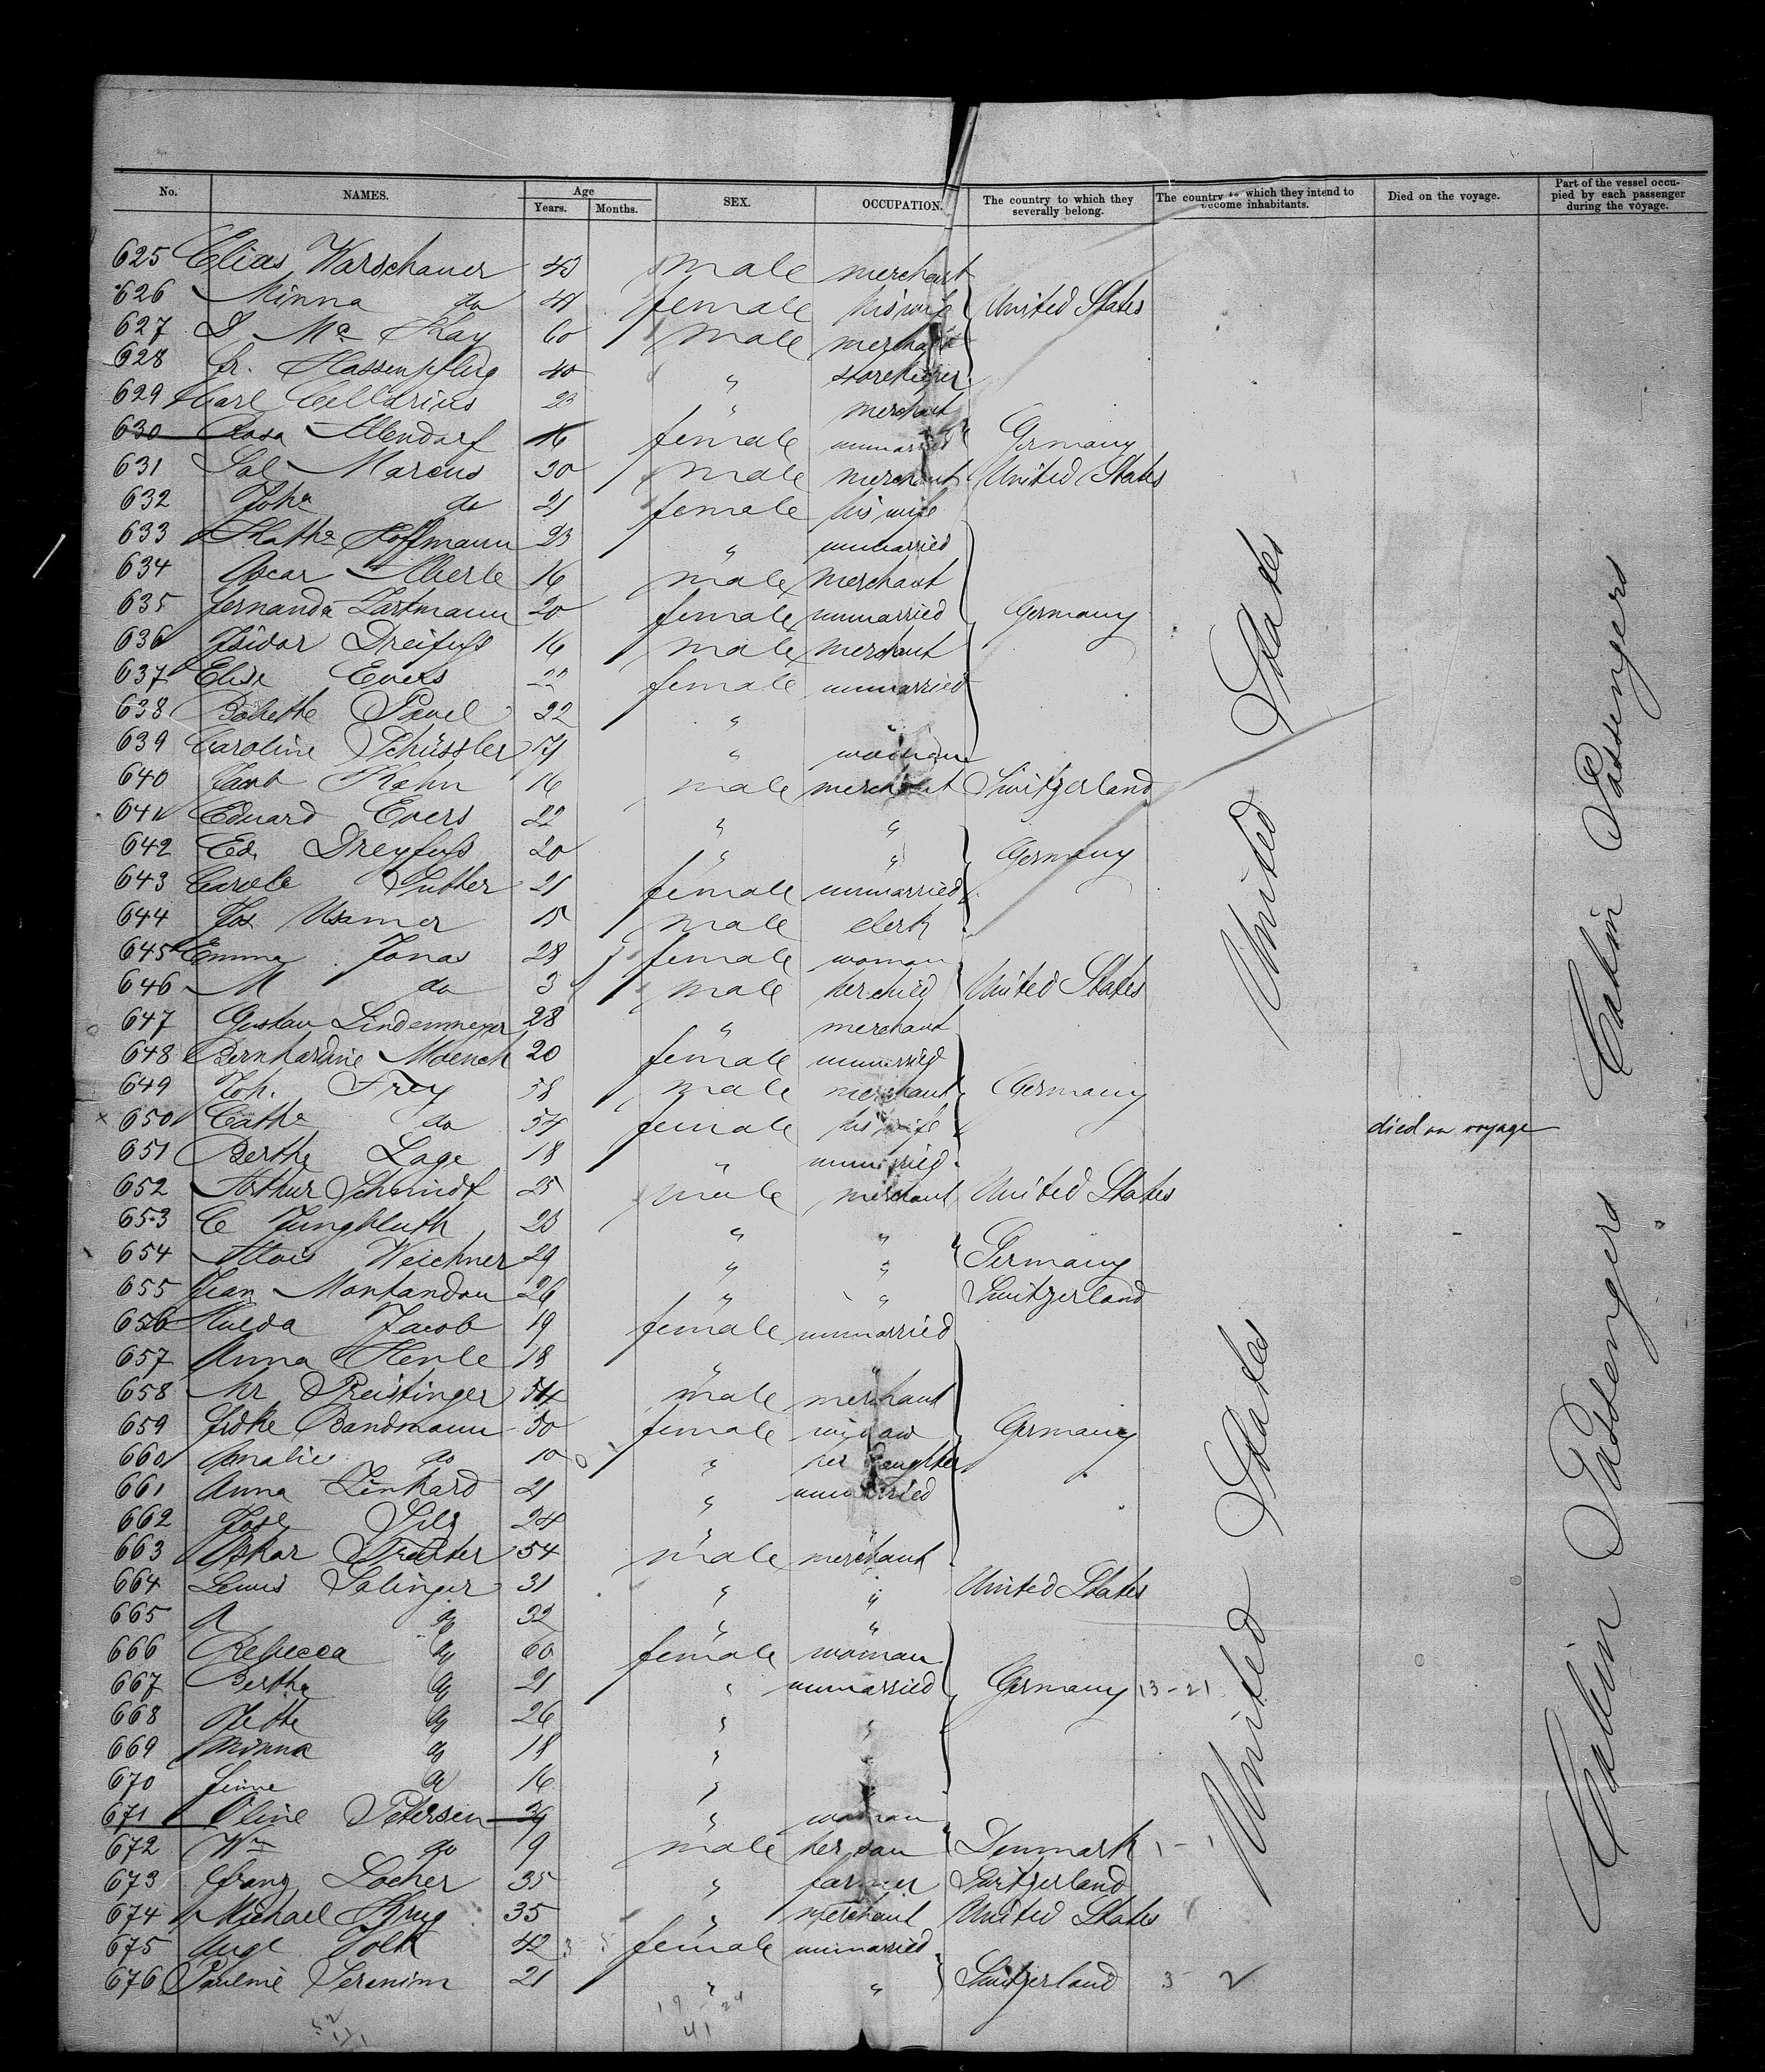 No. NAMES. Age Years. Months. SEX. OCCUPATION. The country to which they severally belong. The country to which they intend to become inhabitants. Died on the voyage. Part of the vessel occupied by each passenger during the voyage.
625 Elias Warschauer 43 male merchant
626 Minna do 44 female his wife United States
627 D Mc Kay 60 male merchant
628 Fr. Hassenpflug 40 " storekeeper
629 Carl Cellarius 23 " merchant
630 Rosa Allendorf 16 female unmarried Germany
631 Sal Marcus 30 male merchant United States
632 Joha do 21 female his wife
633 Katha Hoffmann 23 " unmarried
634 Oscar Aberle 16 male merchant
635 Fernanda Hartmann 20 female unmarried Germany
636 Isidor Dreifuss 16 male merchant
637 Elise Evers 22 female unmarried
638 Babette Pavel 22 " "
639 Caroline Schüssler 17 " woman
640 Jacob Kahn 16 male merchant Switzerland
641 Eduard Evers 22 " "
642 Ed. Dreyfuss 20 " " Germany
643 Carole Sutter 21 female unmarried
644 Jos 15 male clerk
645 Emma Jonas 28 female woman
646 M do 3 male her child United States
647 Gustav Lindenmeyer 28 " merchant
648 Bernhardine Moench 20 female unmarried
649 Joh. Frey 58 male merchant Germany
650 Catha do 54 female his wife died on voyage
651 Bertha Lage 18 " unmarried
652 Arthur Schmidt 25 male merchant United States
653 C Jungbluth 23 " "
654 Alois Weichner 29 " " Germany
655 Jean Montandon 26 " " Switzerland
656 Hulda Jacob 19 female unmarried
657 Anna Henle 18 " "
658 Mr Reistinger 54 male merchant
659 Bandmann 50 female widow Germany
660 Amalie do 10 " her daughter
661 Anna Linhard 21 " unmarried
662 24 " "
663 Oskar 54 male merchant
664 Lewis Salinger 31 " " United States
665 A do 32 " "
666 Rebecca do 60 female woman
667 Bertha do 21 " unmarried Germany 13-21
668 Jette do 26 " "
669 Minna do 18 " "
670 do 16 " "
671 Oline Petersen 39 " woman
672 Wm do 9 male her son Denmark
673 Franz Locher 35 " farmer Switzerland
674 Michael Krug 35 " merchant United States
675 Volk 42 female unmarried
676 Pauline 21 " " Switzerland 3 2
19 24
41
United States
United States
Cabin Passengers
Cabin Passengers